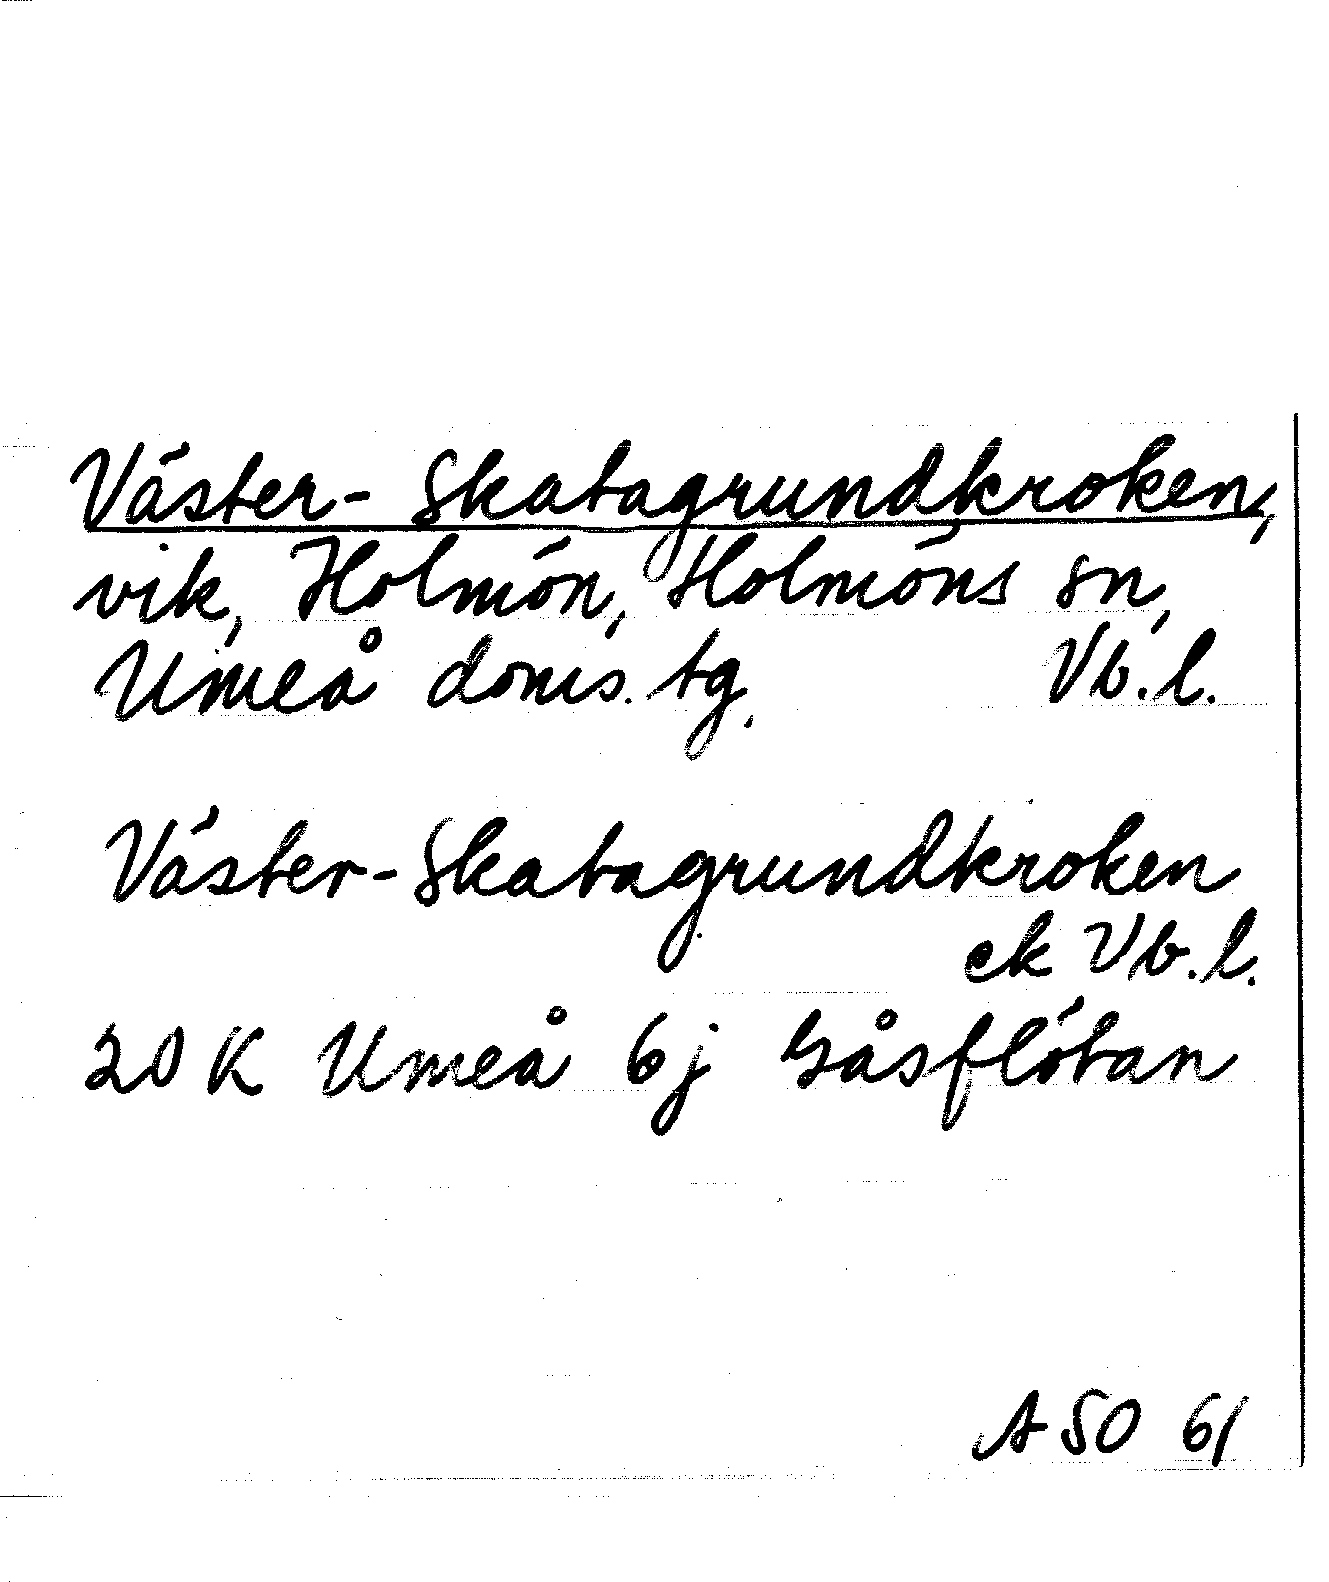 Väster-Skatagrundkroken,
vik, Holmön, Holmöns sn,
Umeå doms. tg. Vb.l.
Väster-Skatagrundkroken
ek Vb.l.
20 K Umeå 6j Gåsflötan
ASO 61